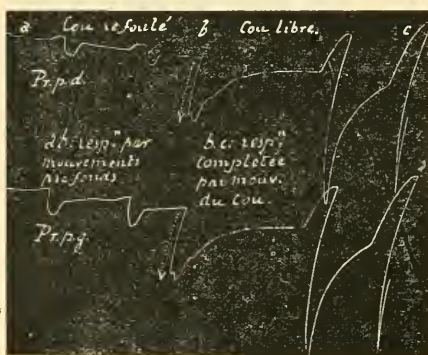 a Cou refoulé b Cou libre. c
Pr.p.d.
a.b.: resp.ⁿ par
mouvements
profonds
b.c.: resp.ⁿ
complétée
par mouv.
du cou.
Pr.p.g.